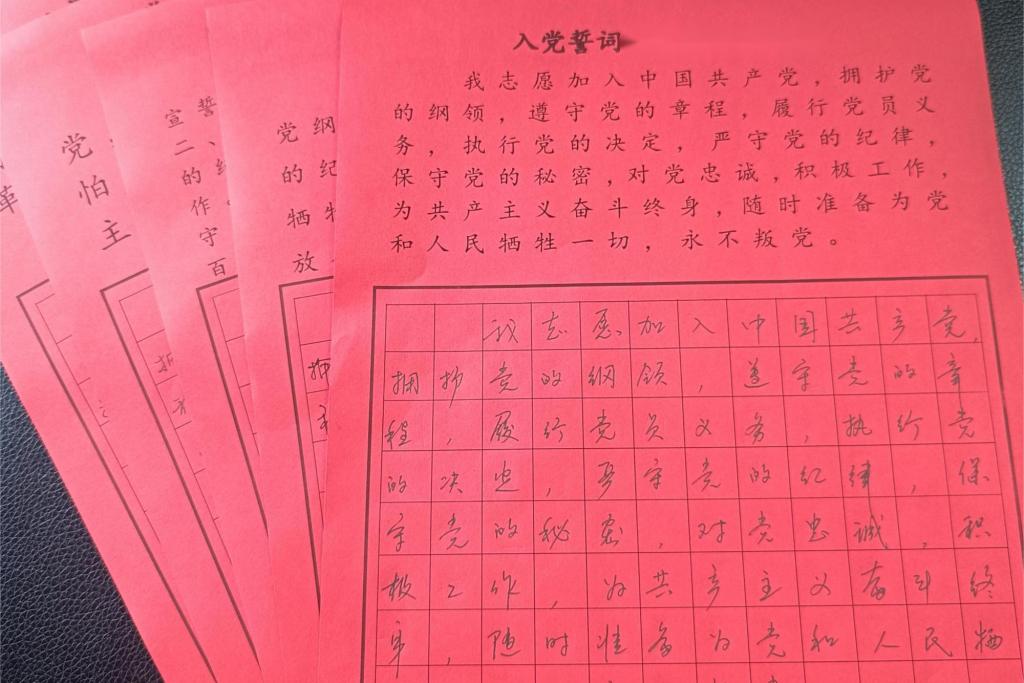 入党誓词
我志愿加入中国共产党，拥护党
的纲领，遵守党的章程，履行党员义
务，执行党的决定，严守党的纪律，
保守党的秘密，对党忠诚，积极工作，
为共产主义奋斗终身，随时准备为党
和人民牺牲一切，永不叛党。
我志愿加入中国共产党，
拥护党的纲领，遵守党的章
程，履行党员义务，执行党
的决定，严守党的纪律，保
守党的秘密，对党忠诚，积
极工作，为共产主义奋斗终
身，随时准备为党和人民牺
党纲
的纪
牺牲
放
宣誓
二、
的纪
作。
守
百
党
怕
主
革